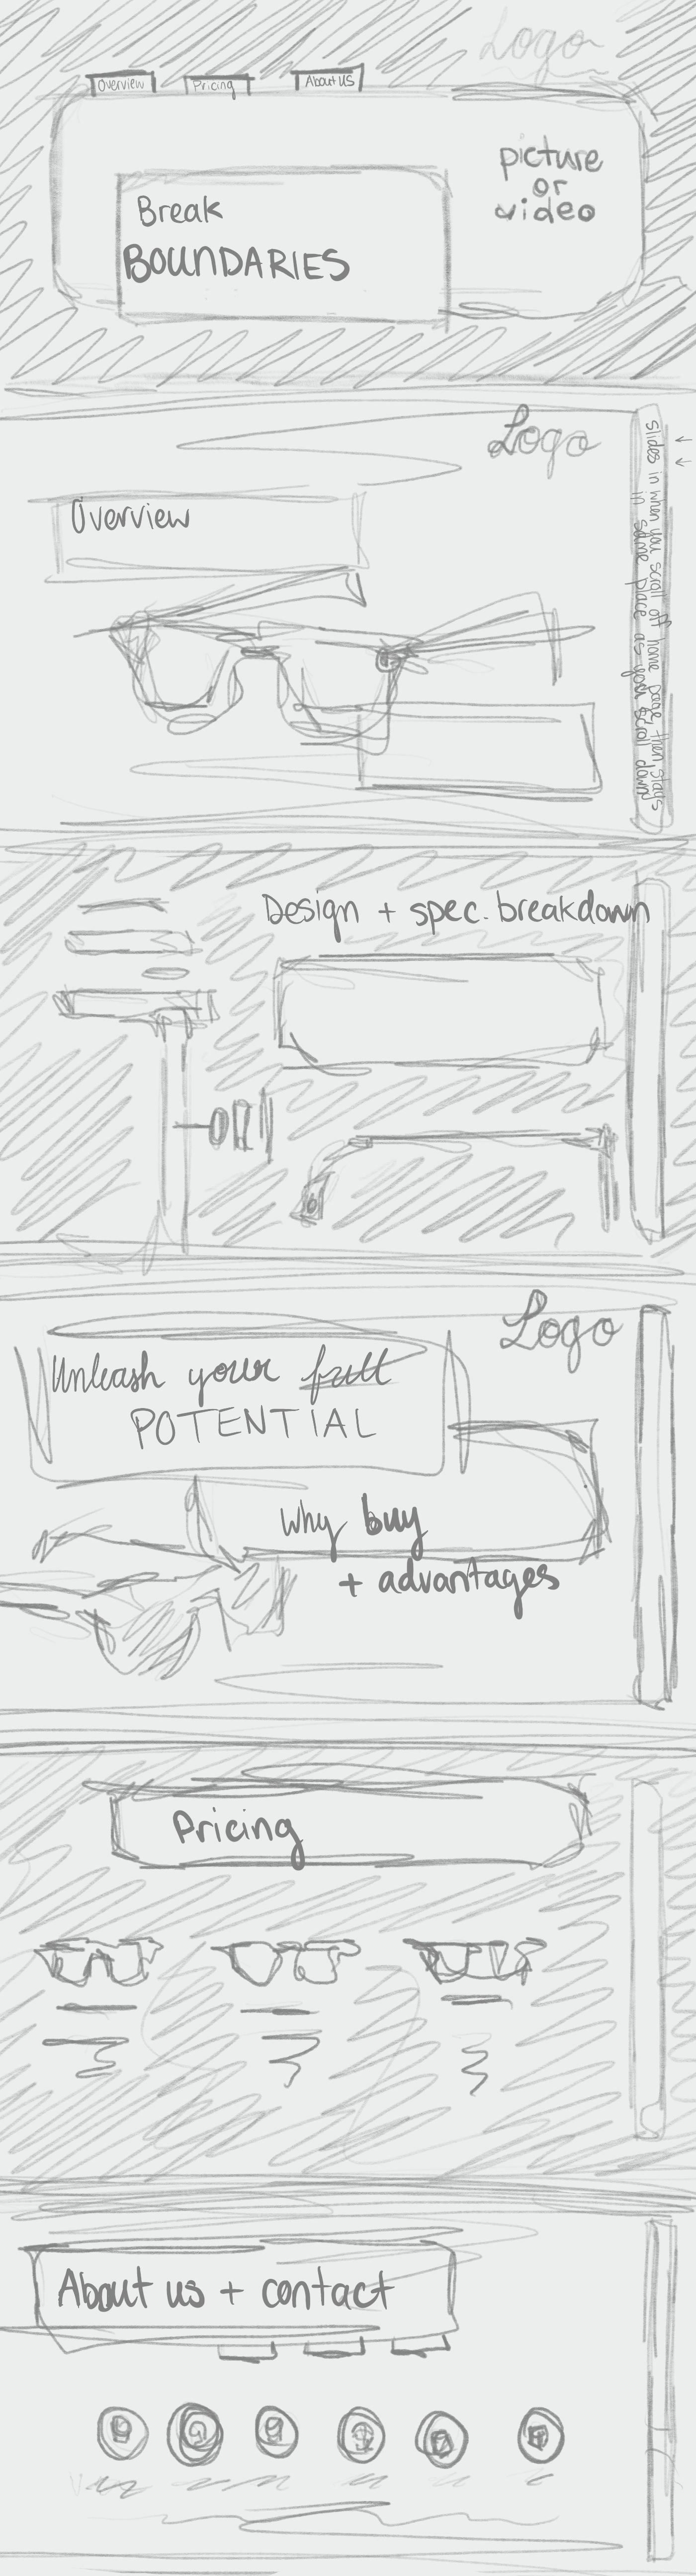 Logo
Overview
Pricing
About US
picture
or
video
Break
BOUNDARIES
Logo
Overview
Slides in when you scroll off home page, then stays
in same place as you scroll down
Design + spec. breakdown
Logo
Unleash your full
POTENTIAL
Why buy
+ advantages
Pricing
About us + contact